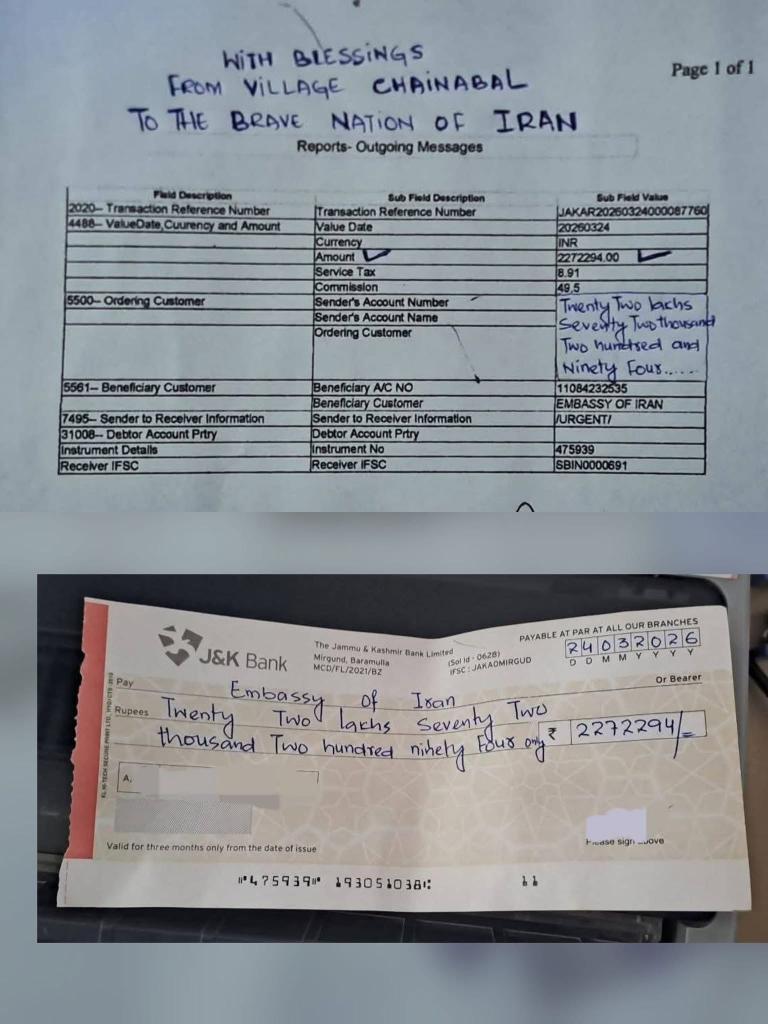 WITH BLESSINGS
FROM VILLAGE CHAINABAL
TO THE BRAVE NATION OF IRAN
Page 1 of 1
Reports- Outgoing Messages
Field Description Sub Field Description Sub Field Value
2020-- Transaction Reference Number Transaction Reference Number JAKAR20260324000087760
4488-- ValueDate,Cuurency and Amount Value Date 20260324
Currency INR
Amount 2272294.00
Service Tax 8.91
Commission 49.5
5500-- Ordering Customer Sender's Account Number Twenty Two lachs
Sender's Account Name Seventy Two thousand
Ordering Customer Two hundred and
Ninety Four.....
5561-- Beneficiary Customer Beneficiary A/C NO 11084232535
Beneficiary Customer EMBASSY OF IRAN
7495-- Sender to Receiver Information Sender to Receiver Information /URGENT/
31008-- Debtor Account Prtry Debtor Account Prtry
Instrument Details Instrument No 475939
Receiver IFSC Receiver IFSC SBIN0000691
J&K Bank
The Jammu & Kashmir Bank Limited
Mirgund, Baramulla
MCD/FL/2021/BZ
(Sol Id - 0628)
IFSC : JAKA0MIRGUD
PAYABLE AT PAR AT ALL OUR BRANCHES
24032026
D D M M Y Y Y Y
Pay Embassy of Iran Or Bearer
Rupees Twenty Two lakhs Seventy Two
thousand Two hundred ninety four only ₹ 2272294/=
A.
Valid for three months only from the date of issue
Please sign above
⑈475939⑈ 193051038⑆ 11